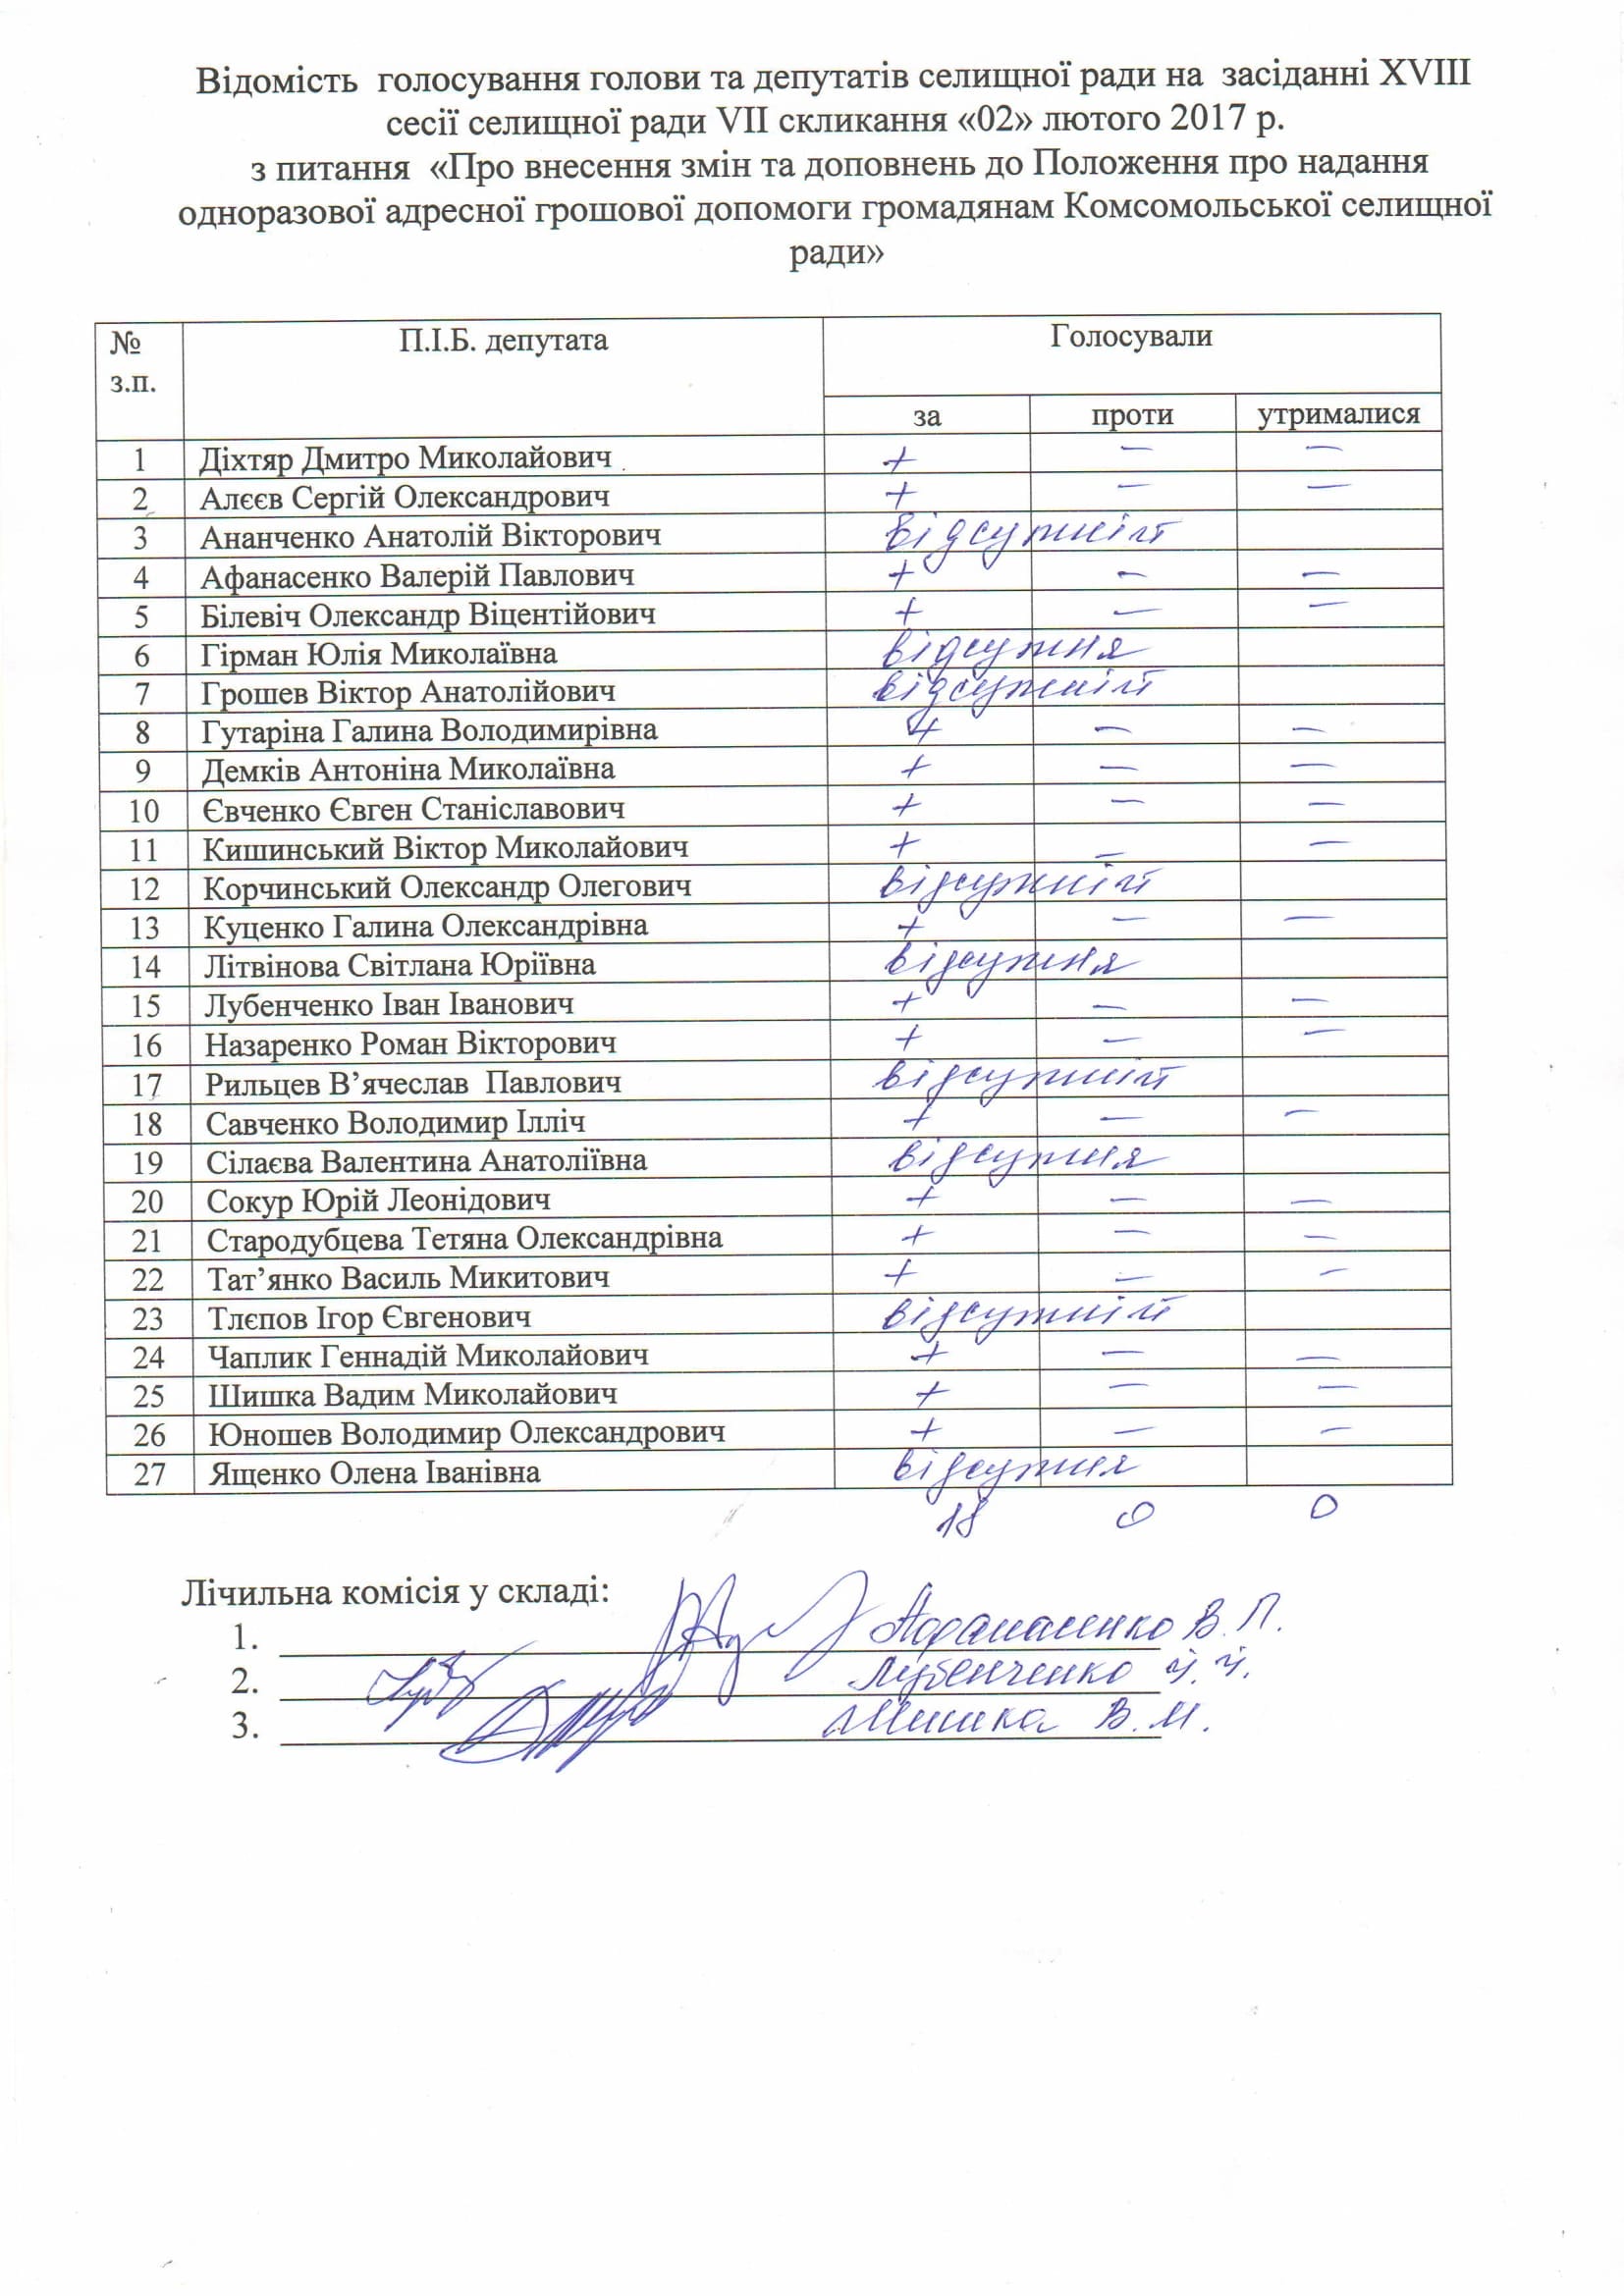 Відомість голосування голови та депутатів селищної ради на засіданні XVIII
сесії селищної ради VII скликання «02» лютого 2017 р.
з питання «Про внесення змін та доповнень до Положення про надання
одноразової адресної грошової допомоги громадянам Комсомольської селищної
ради»
№ з.п. П.І.Б. депутата Голосували
за проти утрималися
1 Діхтяр Дмитро Миколайович + – –
2 Алєєв Сергій Олександрович + – –
3 Ананченко Анатолій Вікторович відсутній
4 Афанасенко Валерій Павлович + – –
5 Білевіч Олександр Віцентійович + – –
6 Гірман Юлія Миколаївна відсутня
7 Грошев Віктор Анатолійович відсутній
8 Гутаріна Галина Володимирівна + – –
9 Демків Антоніна Миколаївна + – –
10 Євченко Євген Станіславович + – –
11 Кишинський Віктор Миколайович + – –
12 Корчинський Олександр Олегович відсутній
13 Куценко Галина Олександрівна + – –
14 Літвінова Світлана Юріївна відсутня
15 Лубенченко Іван Іванович + – –
16 Назаренко Роман Вікторович + – –
17 Рильцев В’ячеслав Павлович відсутній
18 Савченко Володимир Ілліч + – –
19 Сілаєва Валентина Анатоліївна відсутня
20 Сокур Юрій Леонідович + – –
21 Стародубцева Тетяна Олександрівна + – –
22 Тат’янко Василь Микитович + – –
23 Тлєпов Ігор Євгенович відсутній
24 Чаплик Геннадій Миколайович + – –
25 Шишка Вадим Миколайович + – –
26 Юношев Володимир Олександрович + – –
27 Ященко Олена Іванівна відсутня
18 0 0
Лічильна комісія у складі:
1. Афанасенко В.П.
2. Лубенченко І.І.
3. Шишка В.М.